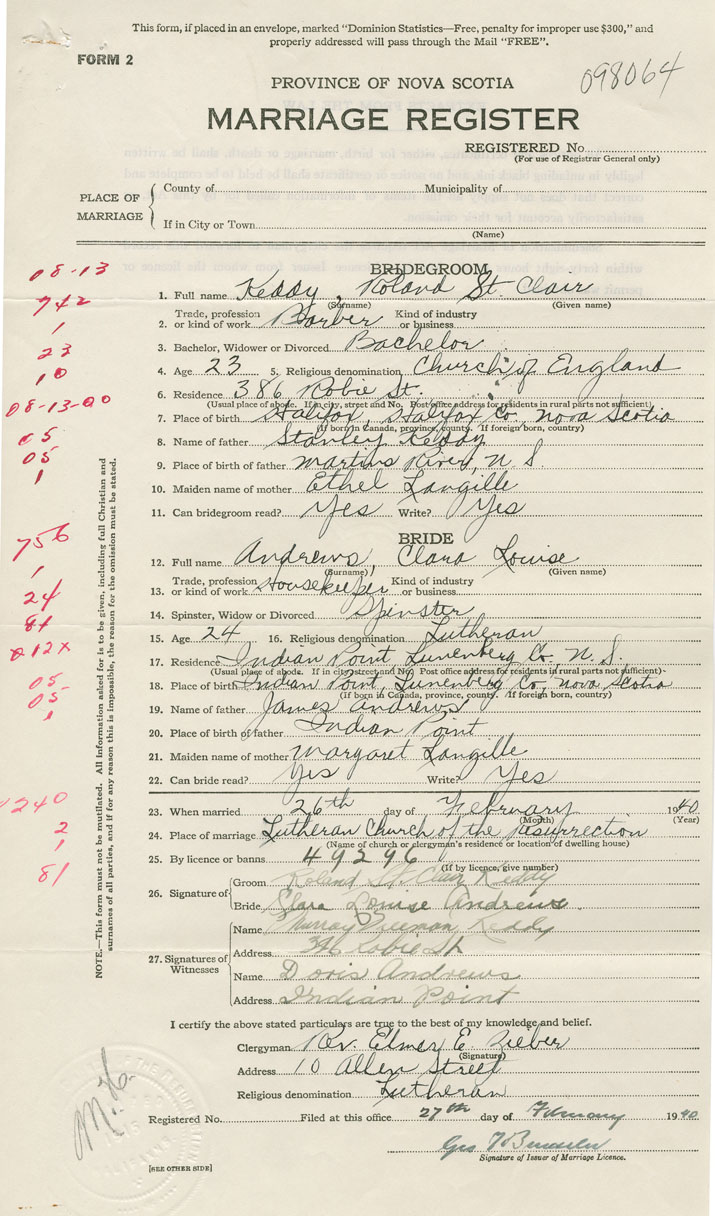 This form, if placed in an envelope, marked "Dominion Statistics—Free, penalty for improper use $300," and
properly addressed will pass through the Mail "FREE".
FORM 2
098064
PROVINCE OF NOVA SCOTIA
MARRIAGE REGISTER
REGISTERED No.
(For use of Registrar General only)
PLACE OF MARRIAGE
County of Municipality of
If in City or Town
(Name)
BRIDEGROOM
08-13
1. Full name Keddy, Roland St. Clair
(Surname) (Given name)
742
Trade, profession Kind of industry
2. or kind of work Barber or business
1
3. Bachelor, Widower or Divorced Bachelor
23
4. Age 23 5. Religious denomination Church of England
10
6. Residence 386 Robie St.
(Usual place of abode. If in city, street and No. Post office address for residents in rural parts not sufficient)
08-13-00
7. Place of birth Halifax, Halifax Co, Nova Scotia
(If born in Canada, province, county. If foreign born, country)
05
8. Name of father Stanley Keddy
05
9. Place of birth of father Martins River, N.S.
1
10. Maiden name of mother Ethel Langille
11. Can bridegroom read? Yes Write? Yes
BRIDE
756
12. Full name Andrews, Clara Louise
(Surname) (Given name)
1
Trade, profession Kind of industry
13. or kind of work Housekeeper or business
24
14. Spinster, Widow or Divorced Spinster
81
15. Age 24 16. Religious denomination Lutheran
012x
17. Residence Indian Point, Lunenberg Co, N.S.
(Usual place of abode. If in city, street and No. Post office address for residents in rural parts not sufficient)
05
18. Place of birth Indian Point, Lunenberg Co, Nova Scotia
(If born in Canada, province, county. If foreign born, country)
05
19. Name of father James Andrews
1
20. Place of birth of father Indian Point
21. Maiden name of mother Margaret Langille
22. Can bride read? Yes Write? Yes
240
23. When married 26th day of February 1940
(Month) (Year)
2
24. Place of marriage Lutheran Church of the Resurrection
(Name of church or clergyman's residence or location of dwelling house)
1
25. By licence or banns 49296
(If by licence, give number)
81
26. Signature of
Groom Roland St. Clair Keddy
Bride Clara Louise Andrews
27. Signatures of Witnesses
Name Murray Freeman Keddy
Address Robie St
Name Doris Andrews
Address Indian Point
I certify the above stated particulars are true to the best of my knowledge and belief.
Clergyman Rev. Elmer E. Zieber
(Signature)
Address 10 Allen Street
Religious denomination Lutheran
Registered No. Filed at this office 27th day of February 1940
Geo
Signature of Issuer of Marriage Licence.
[SEE OTHER SIDE]
M.H.
NOTE.—This form must not be mutilated. All Information asked for is to be given, including full Christian and
surnames of all parties, and if for any reason this is impossible, the reason for the omission must be stated.